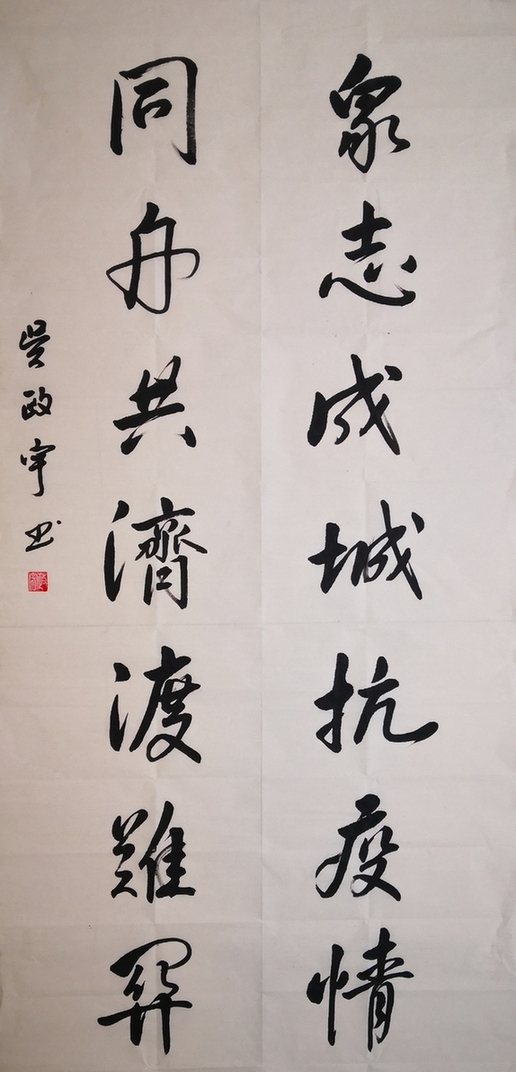 眾志成城抗疫情
同舟共濟渡難關
吴政宇书